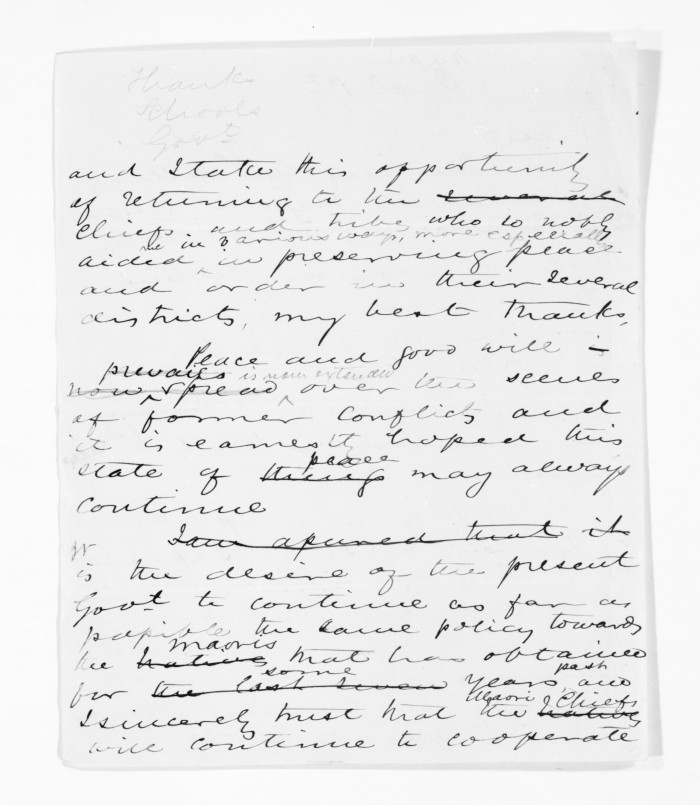 Thanks
Schools
Govt
and I take this opportunity
of returning to the several
chiefs and tribes who so nobly
me in various ways, more especially
aided in preserving peace
and order in their several
districts, my best thanks,
Peace and good will is
prevails is now extended
now spread over the scenes
of former conflicts and
it is earnestly hoped this
peace
state of things may always
continue
I am assured that it
It
is the desire of the present
Govt to continue as far as
possible the same policy towards
maoris
the natives that has obtained
some past
for the last seven years and
Maori Chiefs
I sincerely trust that the natives
will continue to cooperate